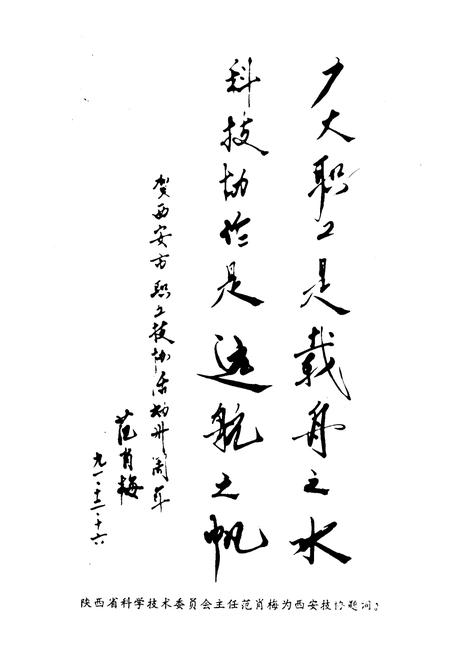 广大职工是载舟之水
科技协作是远航之帆
贺西安市职工技协活动卅周年
范肖梅
九一·十二·十六
陕西省科学技术委员会主任范肖梅为西安技协题词